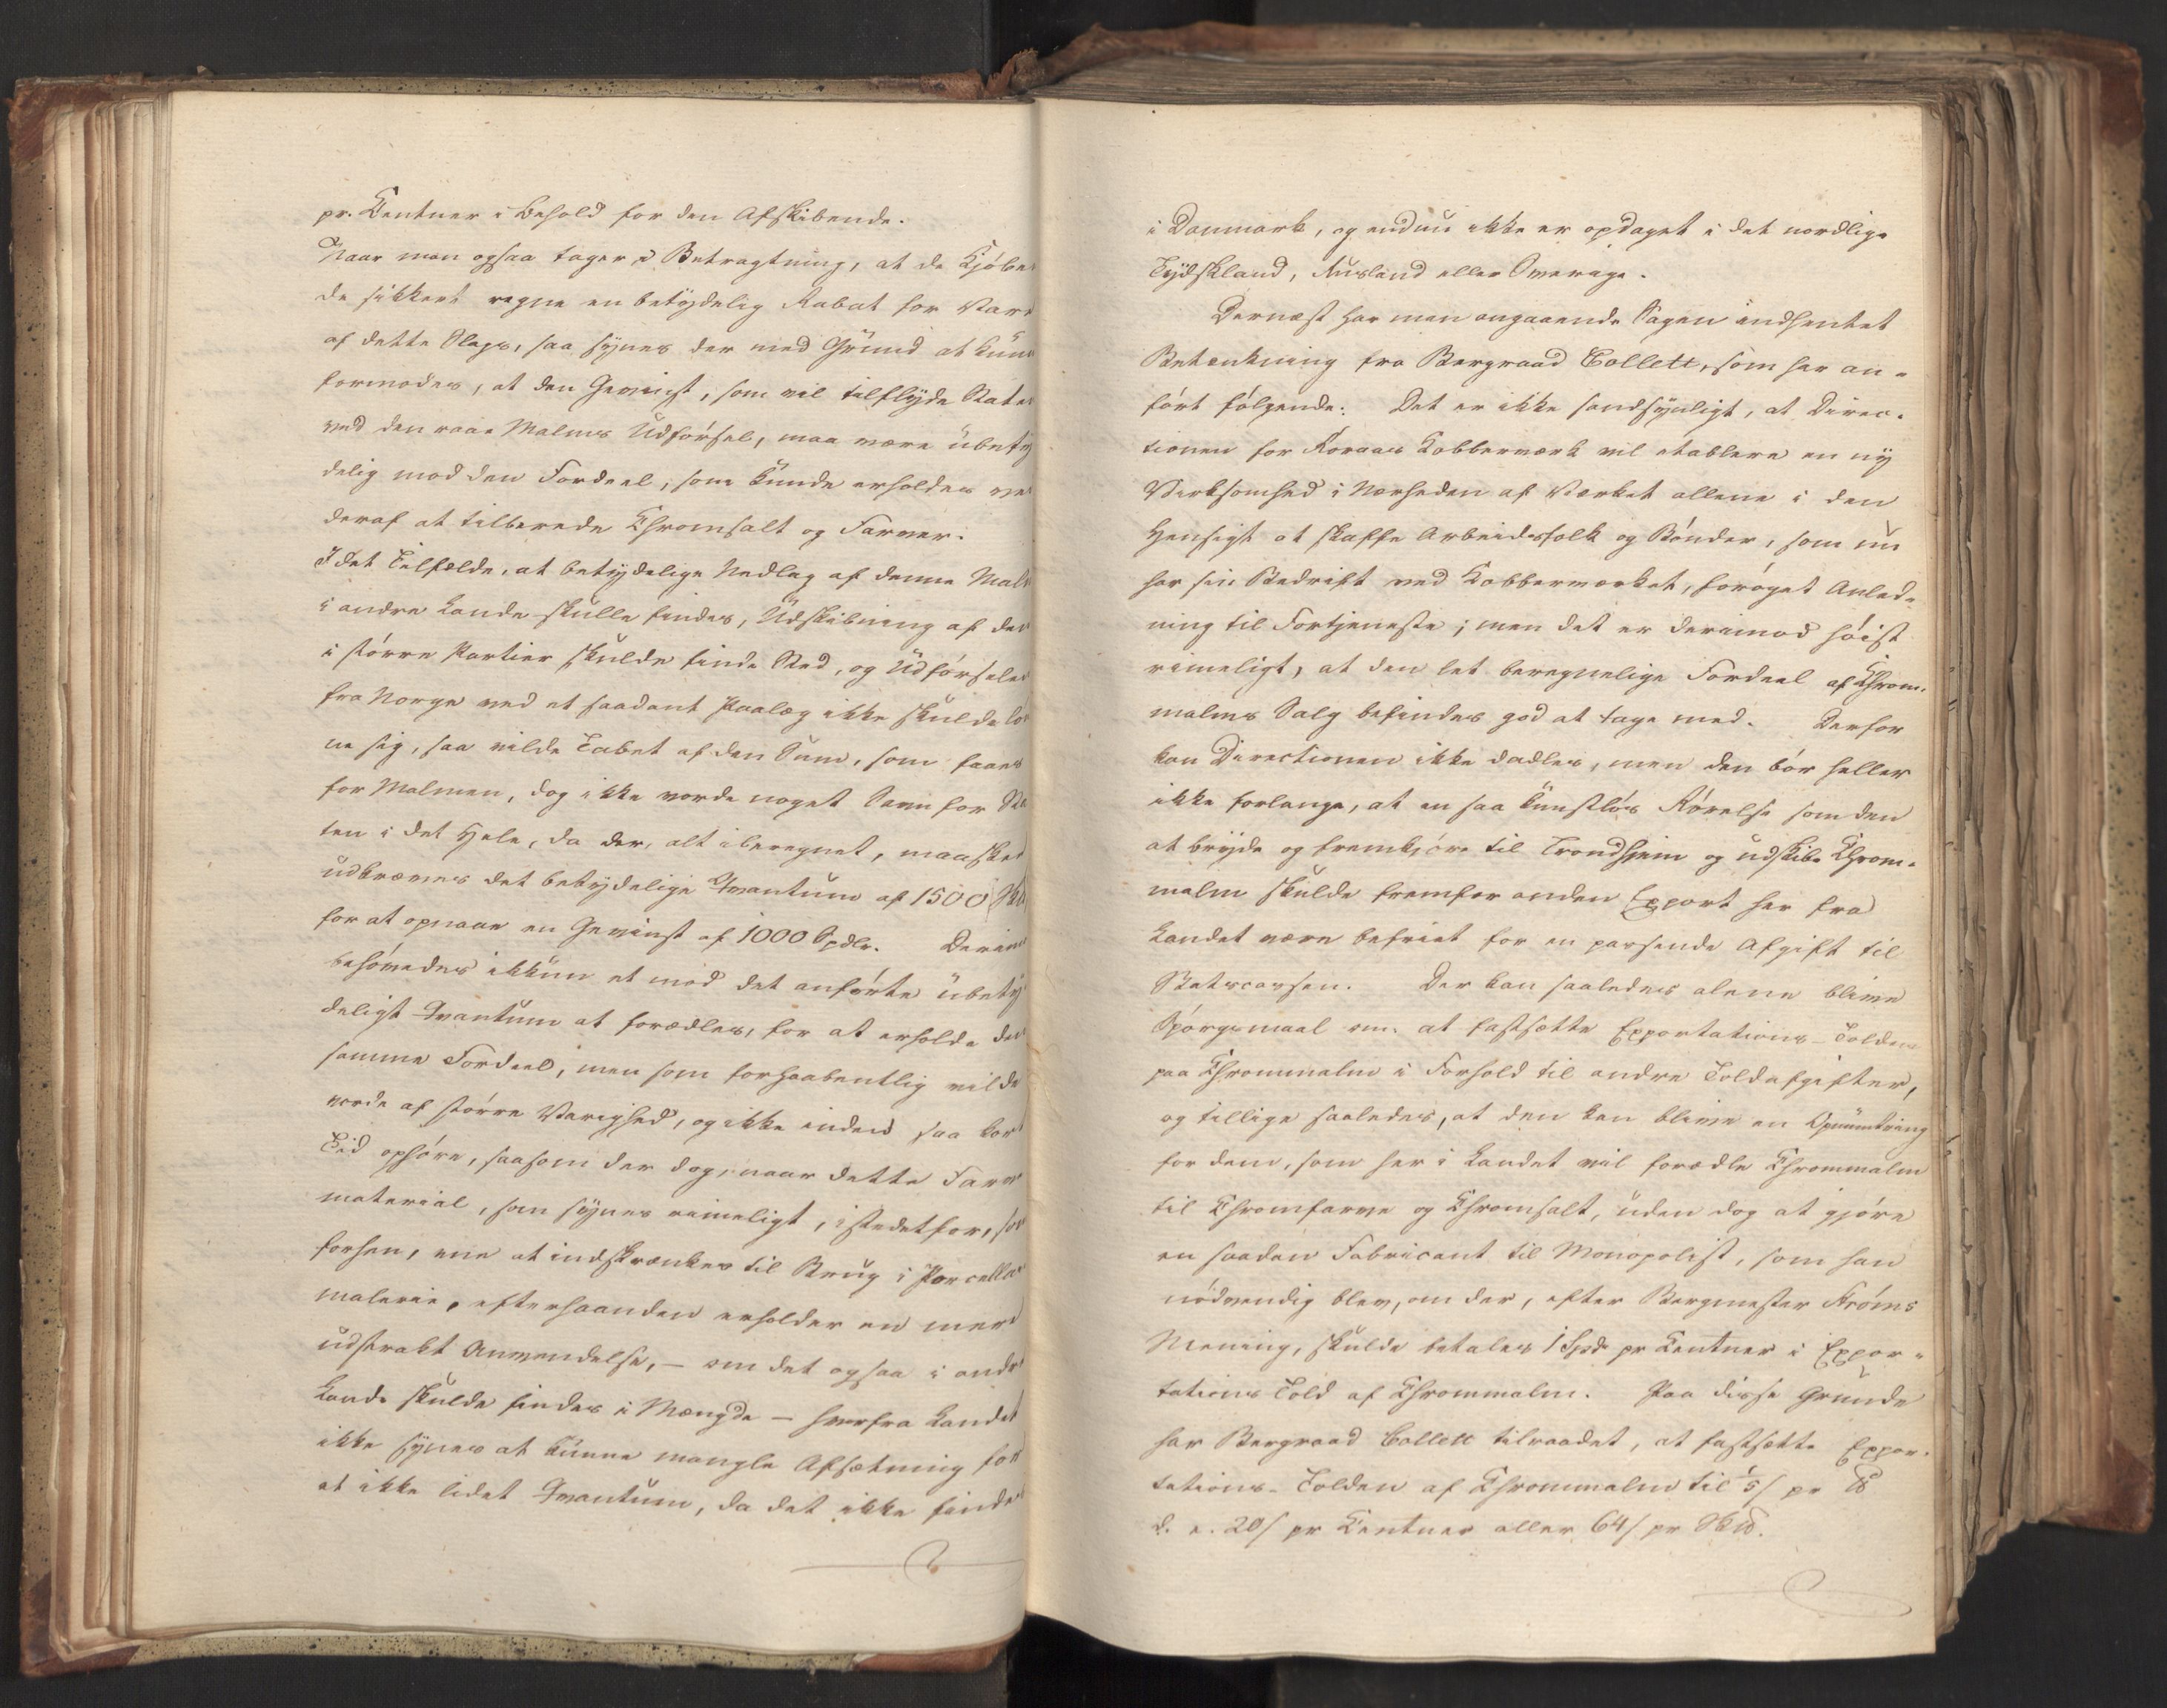 pr. Centner i behold for den Afskibende.
Naar man ogsaa tager i Betragtning, at de Kjøben
de sikkert regne en betydelig Rabat for Vare
af dette Slags, saa synes der med Grund at kunne
formodes, at den Gevinst, som vil tilflyde Staten
ved den raae Malms Udførsel, maa være ubety
delig mod den Fordeel, som kunde erholdes ve
deraf at tilberede Chromsalt og Farver.
I det Tilfælde, at betydelige Nedlag af denne Malm
i andre Lande skulle findes, Udskibning af den
i større Partier skulde finde Sted, og Udførselen
fra Norge ved et saadant Paalæg ikke skulde løn
ne sig, saa vilde Tabet af den Sum, som faaes
for Malmen, dog ikke vorde noget Savn for Sta
ten i det Hele, da der, alt iberegnet, maaskee
udkræves det betydelige Qvantum af 1500 Sk
for at opnaae en Gevinst af 1000 Spdlr. Derimod
behøvedes ikkun et mod det anførte ubety
deligt Qvantum at forædles, for at erholde den
samme Fordeel, men som forhaabentlig vilde
vorde af større Varighed, og ikke inden saa kort
Tid ophøre, saasom der dog, naar dette Farve
material, som synes rimeligt, istedetfor, som
forhen, ene at indskrænkes til Brug i Porcellain
malerie, efterhaanden erholder en mere
udstrakt Anvendelse, – om det ogsaa i andre
Lande skulde findes i Mængde – hverfra Landet
ikke synes at kunne mangle Afsætning for
et ikke lidet Qvantum, da det ikke findes
i Danmark, og endnu ikke er opdaget i det nordlige
Tydskland, Rusland eller Sverige.
Dernæst har man angaaende Sagen indhentet
Betænkning fra Bergraad Collett, som har an-
ført følgende: Det er ikke sandsynligt, at Direc-
tionen for Røraas Kobberværk vil etablere en ny
Virksomhed i Nærheden af Værket allene i den
Hensigt at skaffe Arbeidsfolk og Bønder, som nu
har sin Bedrift ved Kobberværket, forøget Anled-
ning til Fortjeneste; men det er derimod høist
rimeligt, at den let beregnelige Fordeel af Chrom-
malms Salg befindes god at tage med. Derfor
kan Directionen ikke dadles, men den bør heller
ikke forlange, at en saa kunstløs Rørelse som den
at bryde og fremkjøre til Trondhjem og udskibe Chrom-
malm skulde fremfor anden Export her fra
Landet være befriet for en passende Afgift til
Statscassen. Der kan saaledes alene blive
Spørgsmaal om at fastsætte Exportations-Tolden
paa Chrommalm i Forhold til andre Toldafgifter,
og tillige saaledes, at den kan blive en Opmuntring
for dem, som her i Landet vil forædle Chrommalm
til Chromfarve og Chromsalt, uden dog at gjøre
en saadan Fabricant til Monopolist, som han
nødvendig blev, om der, efter Bergmester Strøms
Mening, skulde betales 1 Spd. pr Centner i Expor-
tations-Told af Chrommalm. Paa disse Grunde
har Bergraad Collett tilraadet, at fastsætte Expor-
tations-Tolden af Chrommalm til 1/5 ß pr ℔
d. e. 20 ß pr Centner eller 64 ß pr Sk℔.